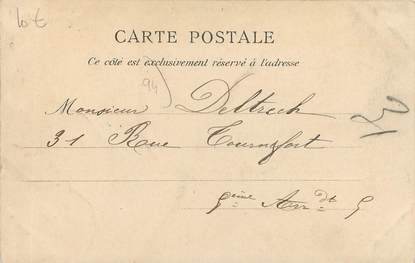 10 €
CARTE POSTALE
Ce côté est exclusivement réservé à l'adresse
94
Monsieur Deltrech
31 Rue Tournefort
5ème Arrdt